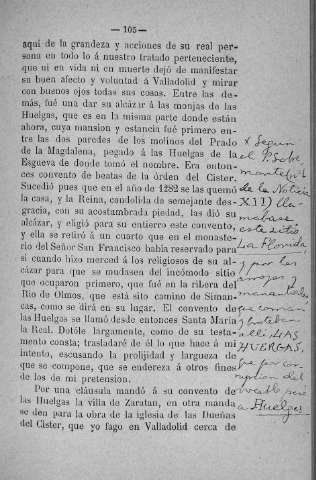 — 105 —
aquí de la grandeza y acciones de su real per-
sona en todo lo á nuestro tratado perteneciente,
que ni en vida ni en muerte dejó de manifestar
su buen afecto y voluntad á Valladolid y mirar
con buenos ojos todas sus cosas. Entre las de-
más, fué una dar su alcázar á las monjas de las
Huelgas, que es en la misma parte donde están
ahora, cuya mansion y estancia fué primero en-
tre las dos paredes de los molinos del Prado
de la Magdalena, pegado á las Huelgas de la
Esgueva de donde tomó el nombre. Era enton-
ces convento de beatas de la órden del Cister.
Sucedió pues que en el año de 1282 se las quemó
la casa, y la Reina, condolida de semejante des-
gracia, con su acostambrada piedad, las dió su
alcázar, y eligió para su entierro este convento,
y ella se retiró á un cuarto que en el monaste-
rio del Señor San Francisco habia reservado para
si cuando hizo merced á los religiosos de su al-
cázar para que se mudasen del incómodo sitio
que ocuparon primero, que fué en la ribera del
Rio de Olmos, que está sito camino de Siman-
cas, como se dirá en su lugar. El convento de
las Huelgas se llamó desde entonces Santa Maria
la Real. Dotóle largamente, como de su testa-
mento consta; trasladaré de él lo que hace á mi
intento, escusando la prolijidad y largueza de
que se compone, que se endereza á otros fines
de los de mi pretension.
Por una cláusula mandó á su convento de
las Huelgas la villa de Zaratan, en otra manda
se den para la obra de la iglesia de las Dueñas
del Cister, que yo fago en Valladolid cerca de
x Segun
el P. Sobre
monte
de la Noticia
XII) lla-
mabase
este sitio
La Florida
y por los
arroyos y
que corrian
alli LAS
HUERGAS,
que por cor-
rupcion del
vocablo
a Huelgas